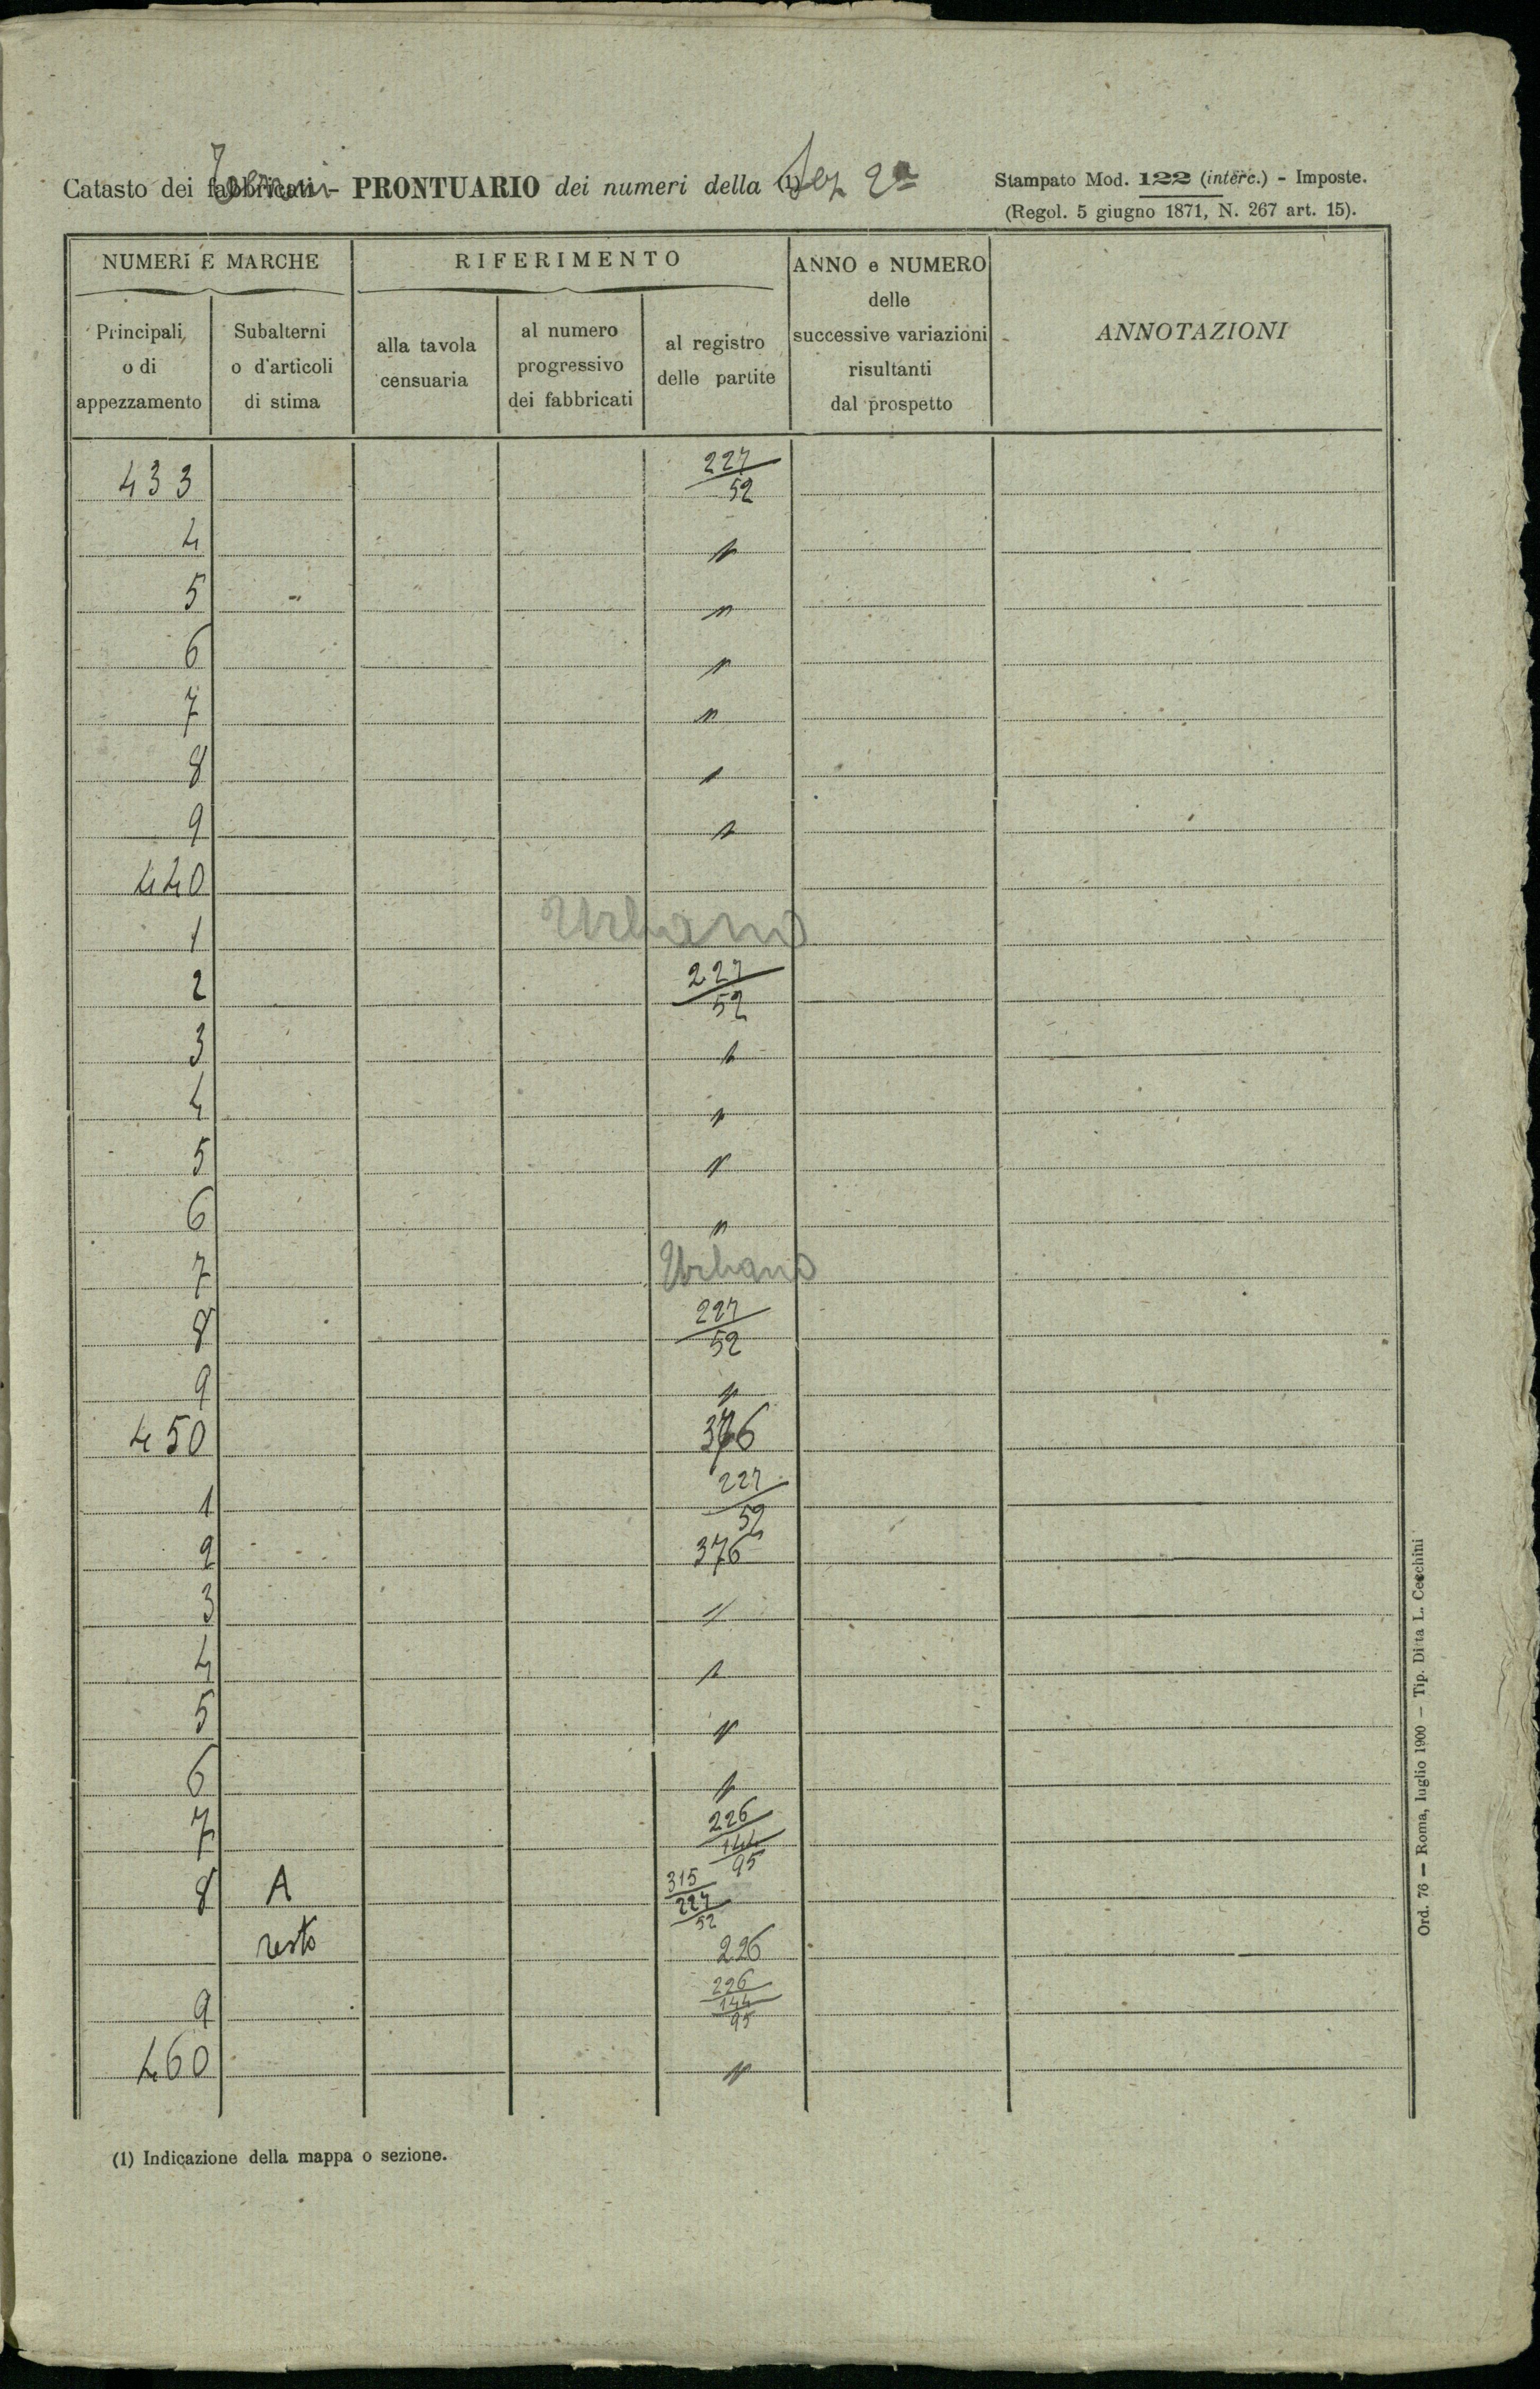 Catasto dei fabbricati - PRONTUARIO dei numeri della (1) Sez 2a
Terreni
Stampato Mod. 122 (interc.) - Imposte.
(Regol. 5 giugno 1871, N. 267 art. 15).
NUMERI E MARCHE RIFERIMENTO ANNO e NUMERO delle successive variazioni risultanti dal prospetto ANNOTAZIONI
Principali o di appezzamento Subalterni o d'articoli di stima alla tavola censuaria al numero progressivo dei fabbricati al registro delle partite
433 227/52
4 "
5 "
6 "
7 "
8 "
9 "
440
1 Urbano
2 227/52
3 "
4 "
5 "
6 "
7 Urbano
8 227/52
9 "
450 376
1 227/52
2 376
3 "
4 "
5 "
6 "
7 226/144/95
8 A 315/227/52
resto 226
9 226/144/95
460 "
(1) Indicazione della mappa o sezione.
Ord. 76 — Roma, luglio 1900 — Tip. Ditta L. Cecchini